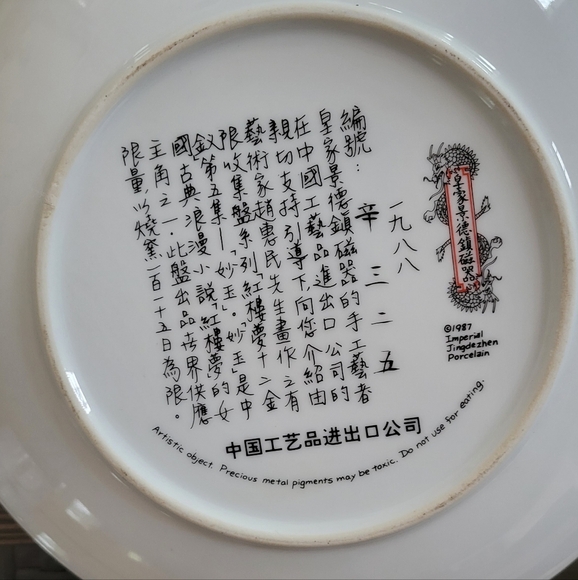 皇家景德鎮磁器品
©1987
Imperial
Jingdezhen
Porcelain
一九八八
編號：辛三二五
皇家景德鎮磁器的手工藝者
在中國工藝品進出口公司的
親切支持引導下向您介紹由
藝術家趙惠民先生畫作之有
限收集盤系列「紅樓夢十二金
釵」第五集—「妙玉」。「妙玉」是中
國古典浪漫小說「紅樓夢」的女
主角之一．此盤出品在世界供應
限量，以燒窯一百一十五日為限。
中国工艺品进出口公司
Artistic object. Precious metal pigments may be toxic. Do not use for eating.